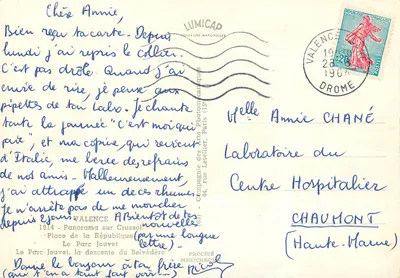 Chère Annie,
Bien reçu ta carte. Depuis
lundi j'ai repris le collier.
C'est pas drôle. Quand j'ai
envie de rire, je pense aux
pipettes de ton Labo. Je chante
toute la journée "C'est moi qui
paie", et ma copine, qui revient
d'Italie, me berce des refrains
de nos amis. Malheureusement,
j'ai attrapé un de ces rhumes.
Je n'arrête pas de me moucher
depuis 2 jours. A Bientôt de tes
nouvelles
(pas une longue
lettre).
Donne le bonjour à ton frère
Nicole
LUMICAP
VALENCE
1814 - Panorama sur Crussol
Place de la République
Le Parc Jouvet
Le Parc Jouvet, la descente du Belvédère
Compagnie des Arts Photomécaniques
44, rue Letellier, Paris 15e
VALENCE
28
196
DROME
0,20
Melle Annie CHANÉ
Laboratoire du
Centre Hospitalier
CHAUMONT
(Haute-Marne)